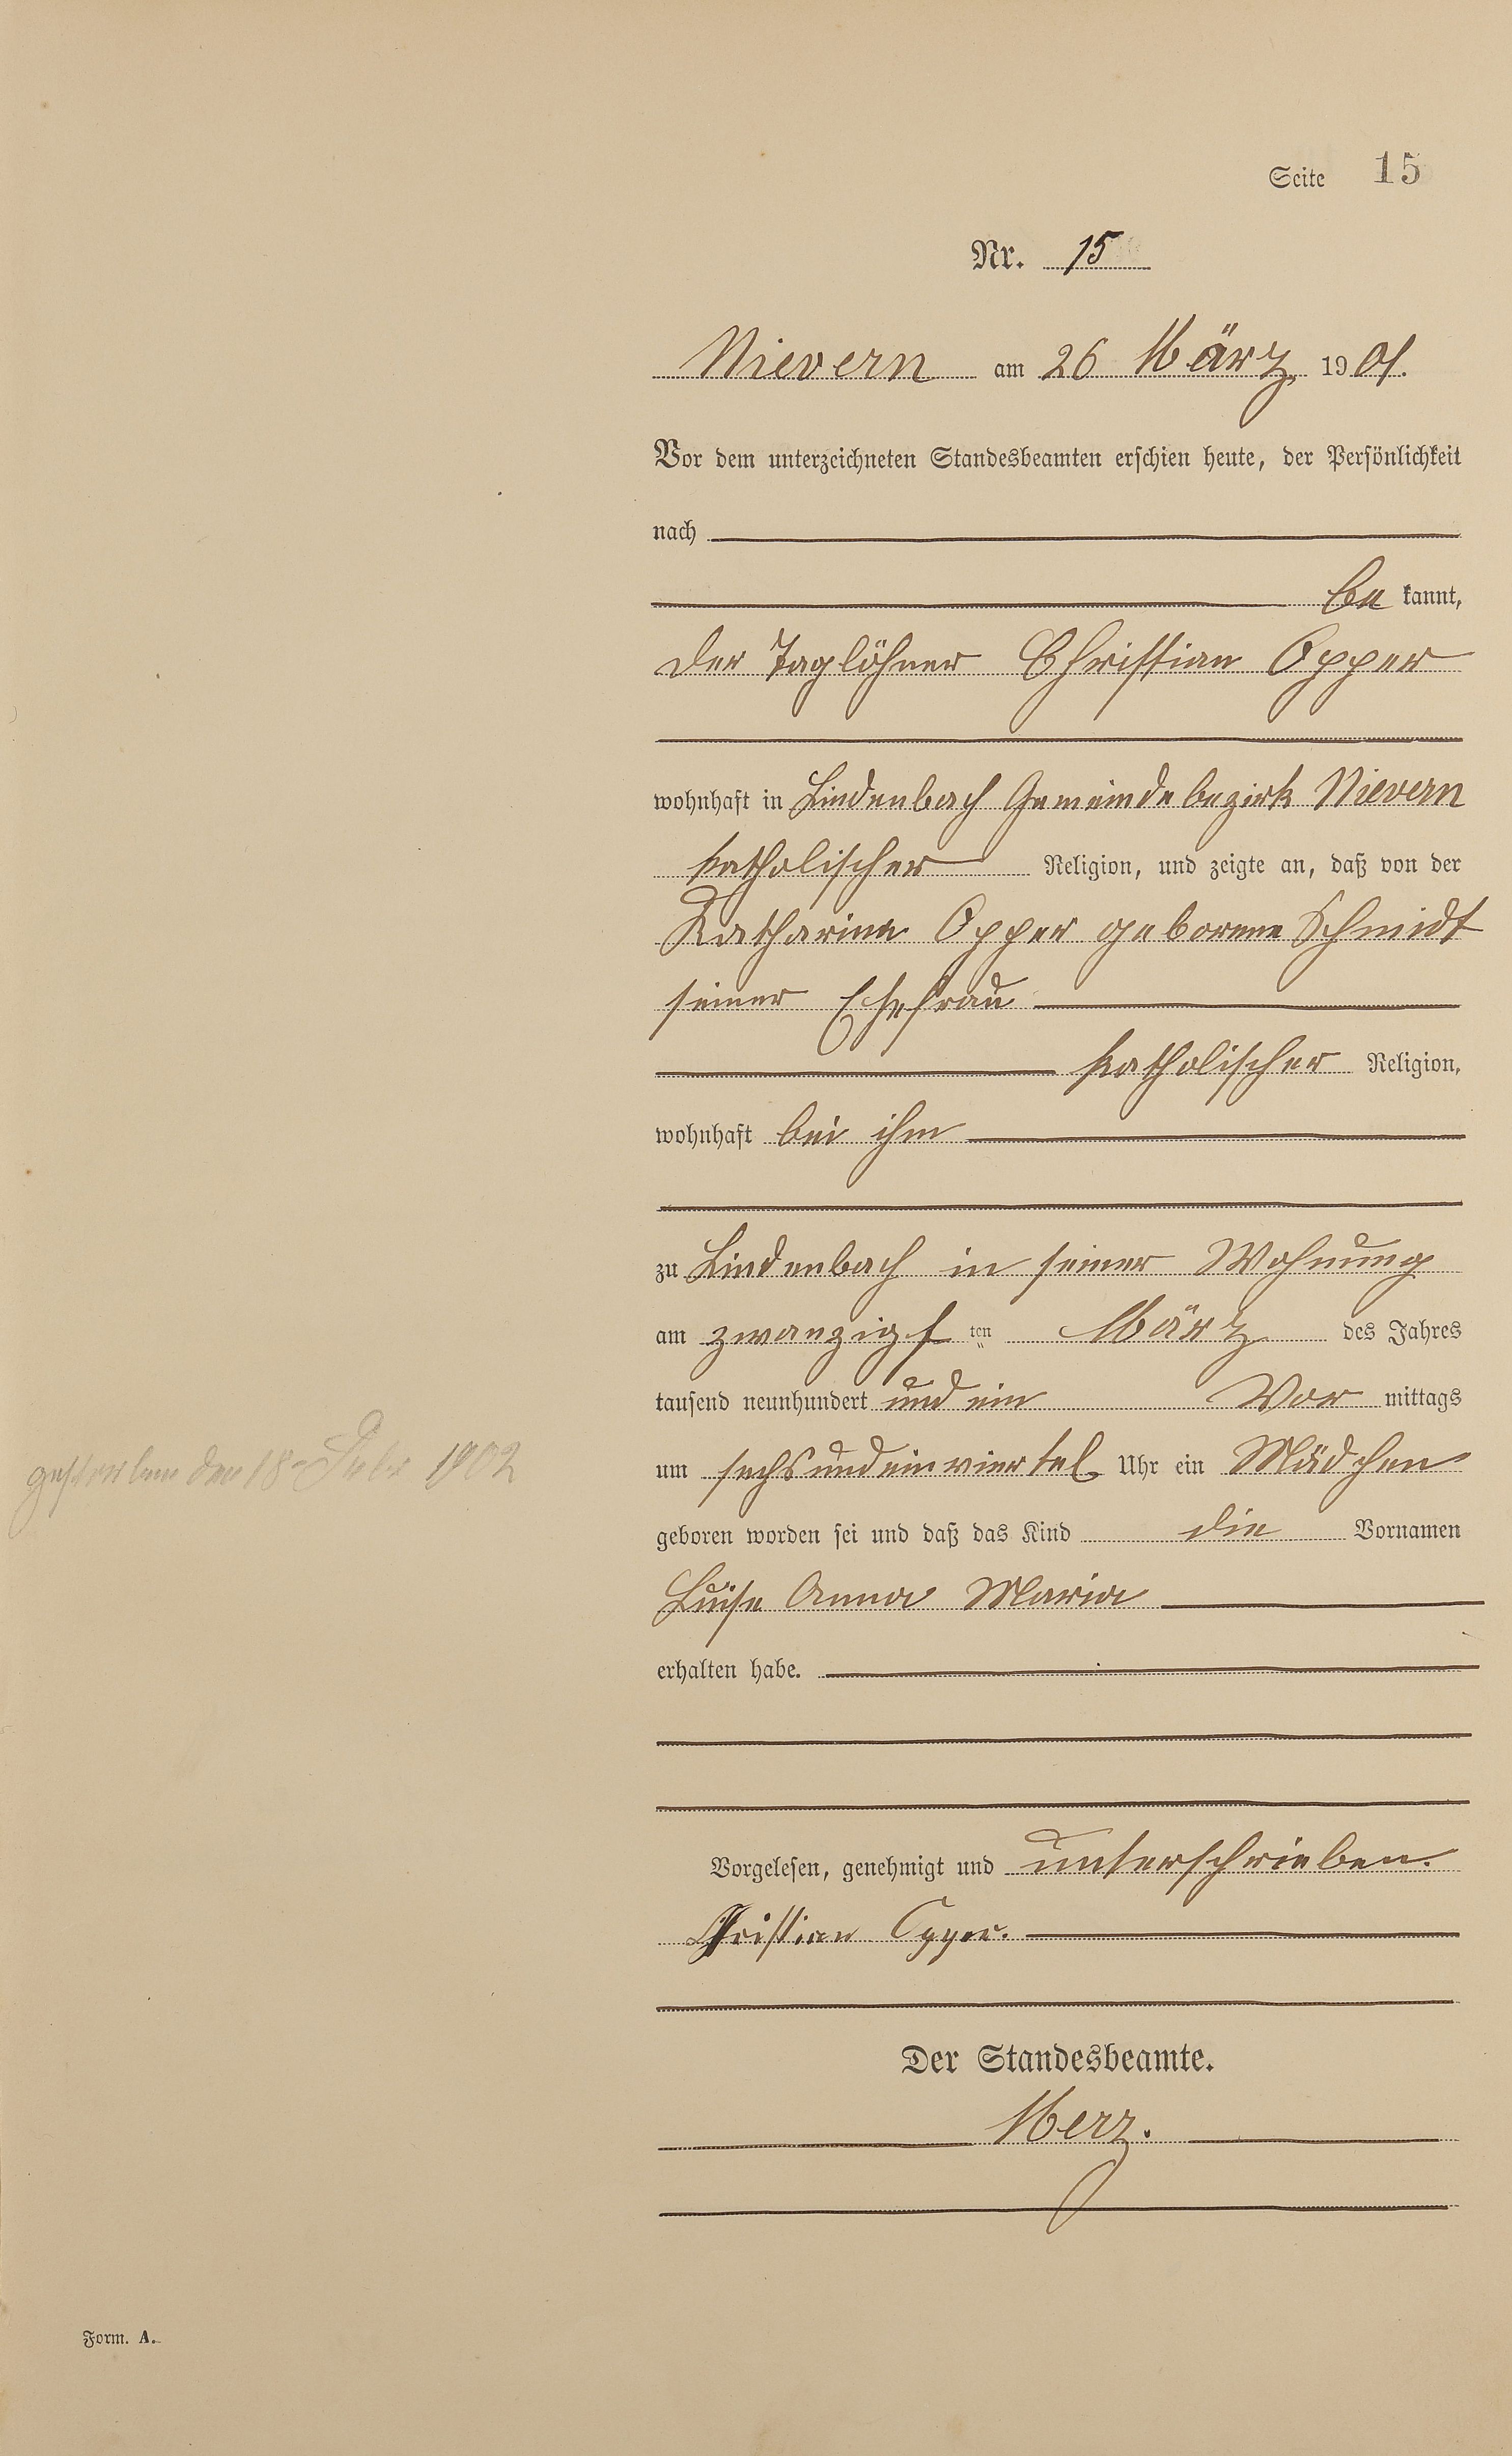 Seite 15
Nr. 15
Nievern am 26 März 1901.
Vor dem unterzeichneten Standesbeamten erschien heute, der Persönlichkeit
nach
be kannt,
der Taglöhner Christian Opper
wohnhaft in Lindenbach Gemeindebezirk Nievern
katholischer Religion, und zeigte an, daß von der
Katharina Opper geborene Schmidt
seiner Ehefrau
katholischer Religion,
wohnhaft bei ihm
zu Lindenbach in seiner Wohnung
am zwanzigsten März des Jahres
tausend neunhundert und ein Vor mittags
um sechsundeinviertel Uhr ein Mädchen
gestorben den 18 1902
geboren worden sei und daß das Kind die Vornamen
Luise Anna Maria
erhalten habe.
Vorgelesen, genehmigt und unterschrieben.
Christian Opper.
Der Standesbeamte.
Merz.
Form. A.